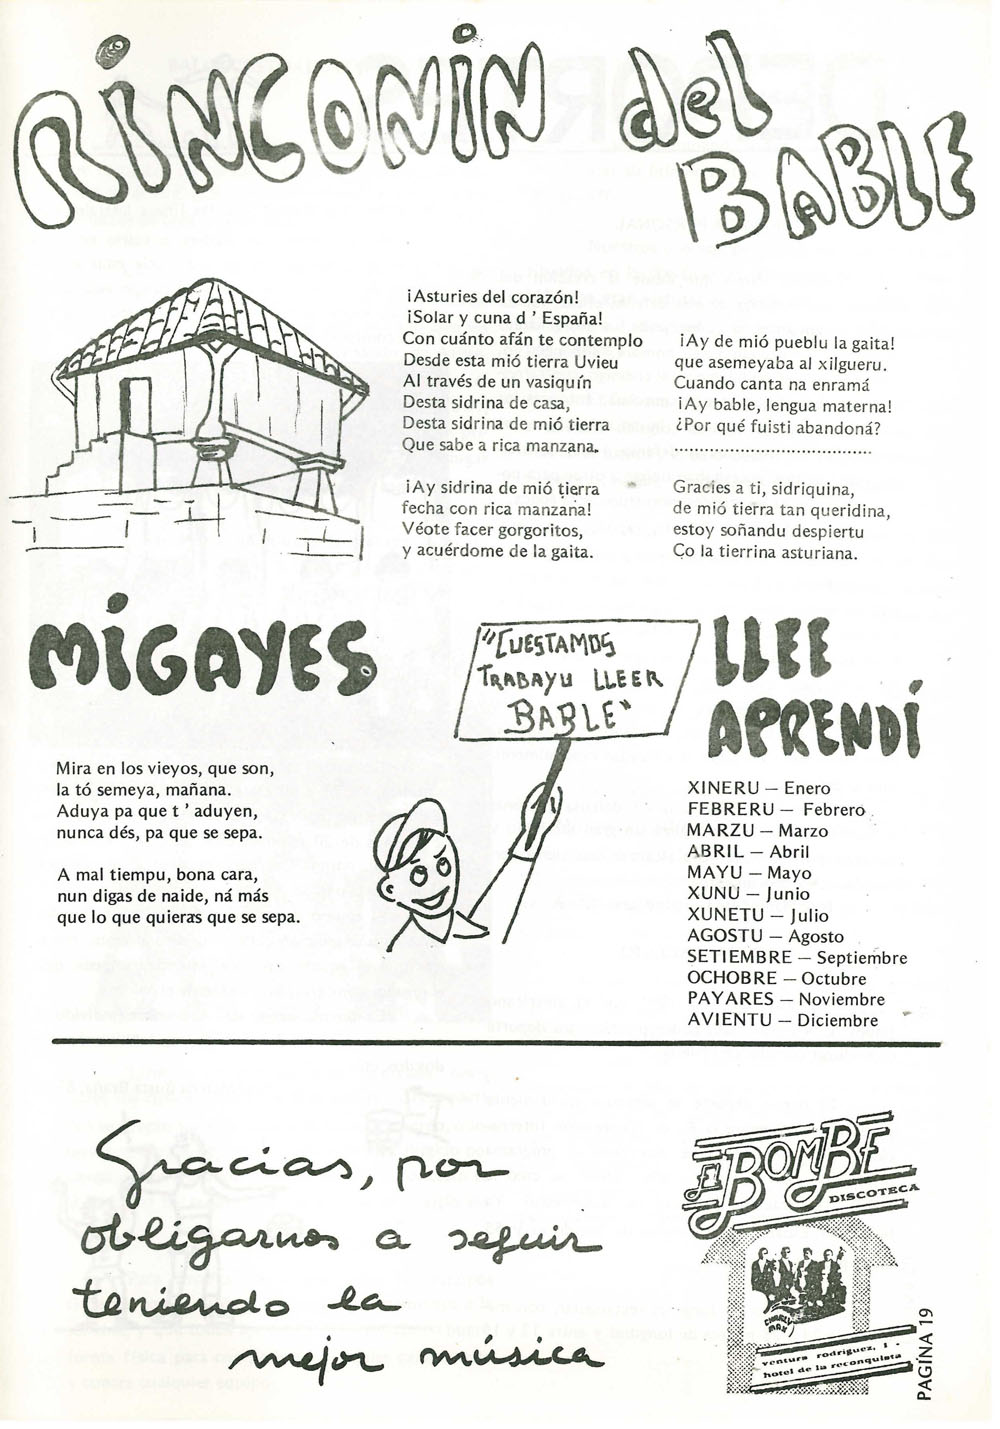 RINCONIN del
BABLE
¡Asturies del corazón!
¡Solar y cuna d ' España!
Con cuánto afán te contemplo
Desde esta mió tierra Uvieu
Al través de un vasiquín
Desta sidrina de casa,
Desta sidrina de mió tierra
Que sabe a rica manzana.
¡Ay sidrina de mió tierra
fecha con rica manzana!
Véote facer gorgoritos,
y acuérdome de la gaita.
¡Ay de mió pueblu la gaita!
que asemeyaba al xilgueru.
Cuando canta na enramá
¡Ay bable, lengua materna!
¿Por qué fuisti abandoná?
..................................
Gracies a ti, sidriquina,
de mió tierra tan queridina,
estoy soñandu despiertu
Ço la tierrina asturiana.
MIGAYES
Mira en los vieyos, que son,
la tó semeya, mañana.
Aduya pa que t ' aduyen,
nunca dés, pa que se sepa.
A mal tiempu, bona cara,
nun digas de naide, ná más
que lo que quieras que se sepa.
"CUESTAMOS
TRABAYU LLEER
BABLE"
LLEE
APRENDÍ
XINERU — Enero
FEBRERU — Febrero
MARZU — Marzo
ABRIL — Abril
MAYU — Mayo
XUNU — Junio
XUNETU — Julio
AGOSTU — Agosto
SETIEMBRE — Septiembre
OCHOBRE — Octubre
PAYARES — Noviembre
AVIENTU — Diciembre
Gracias, por
obligarnos a seguir
teniendo la
mejor música
El BOMBE
DISCOTECA
CHARLY
MAX
ventura rodriguez, 1 -
hotel de la reconquista
PAGÍNA 19